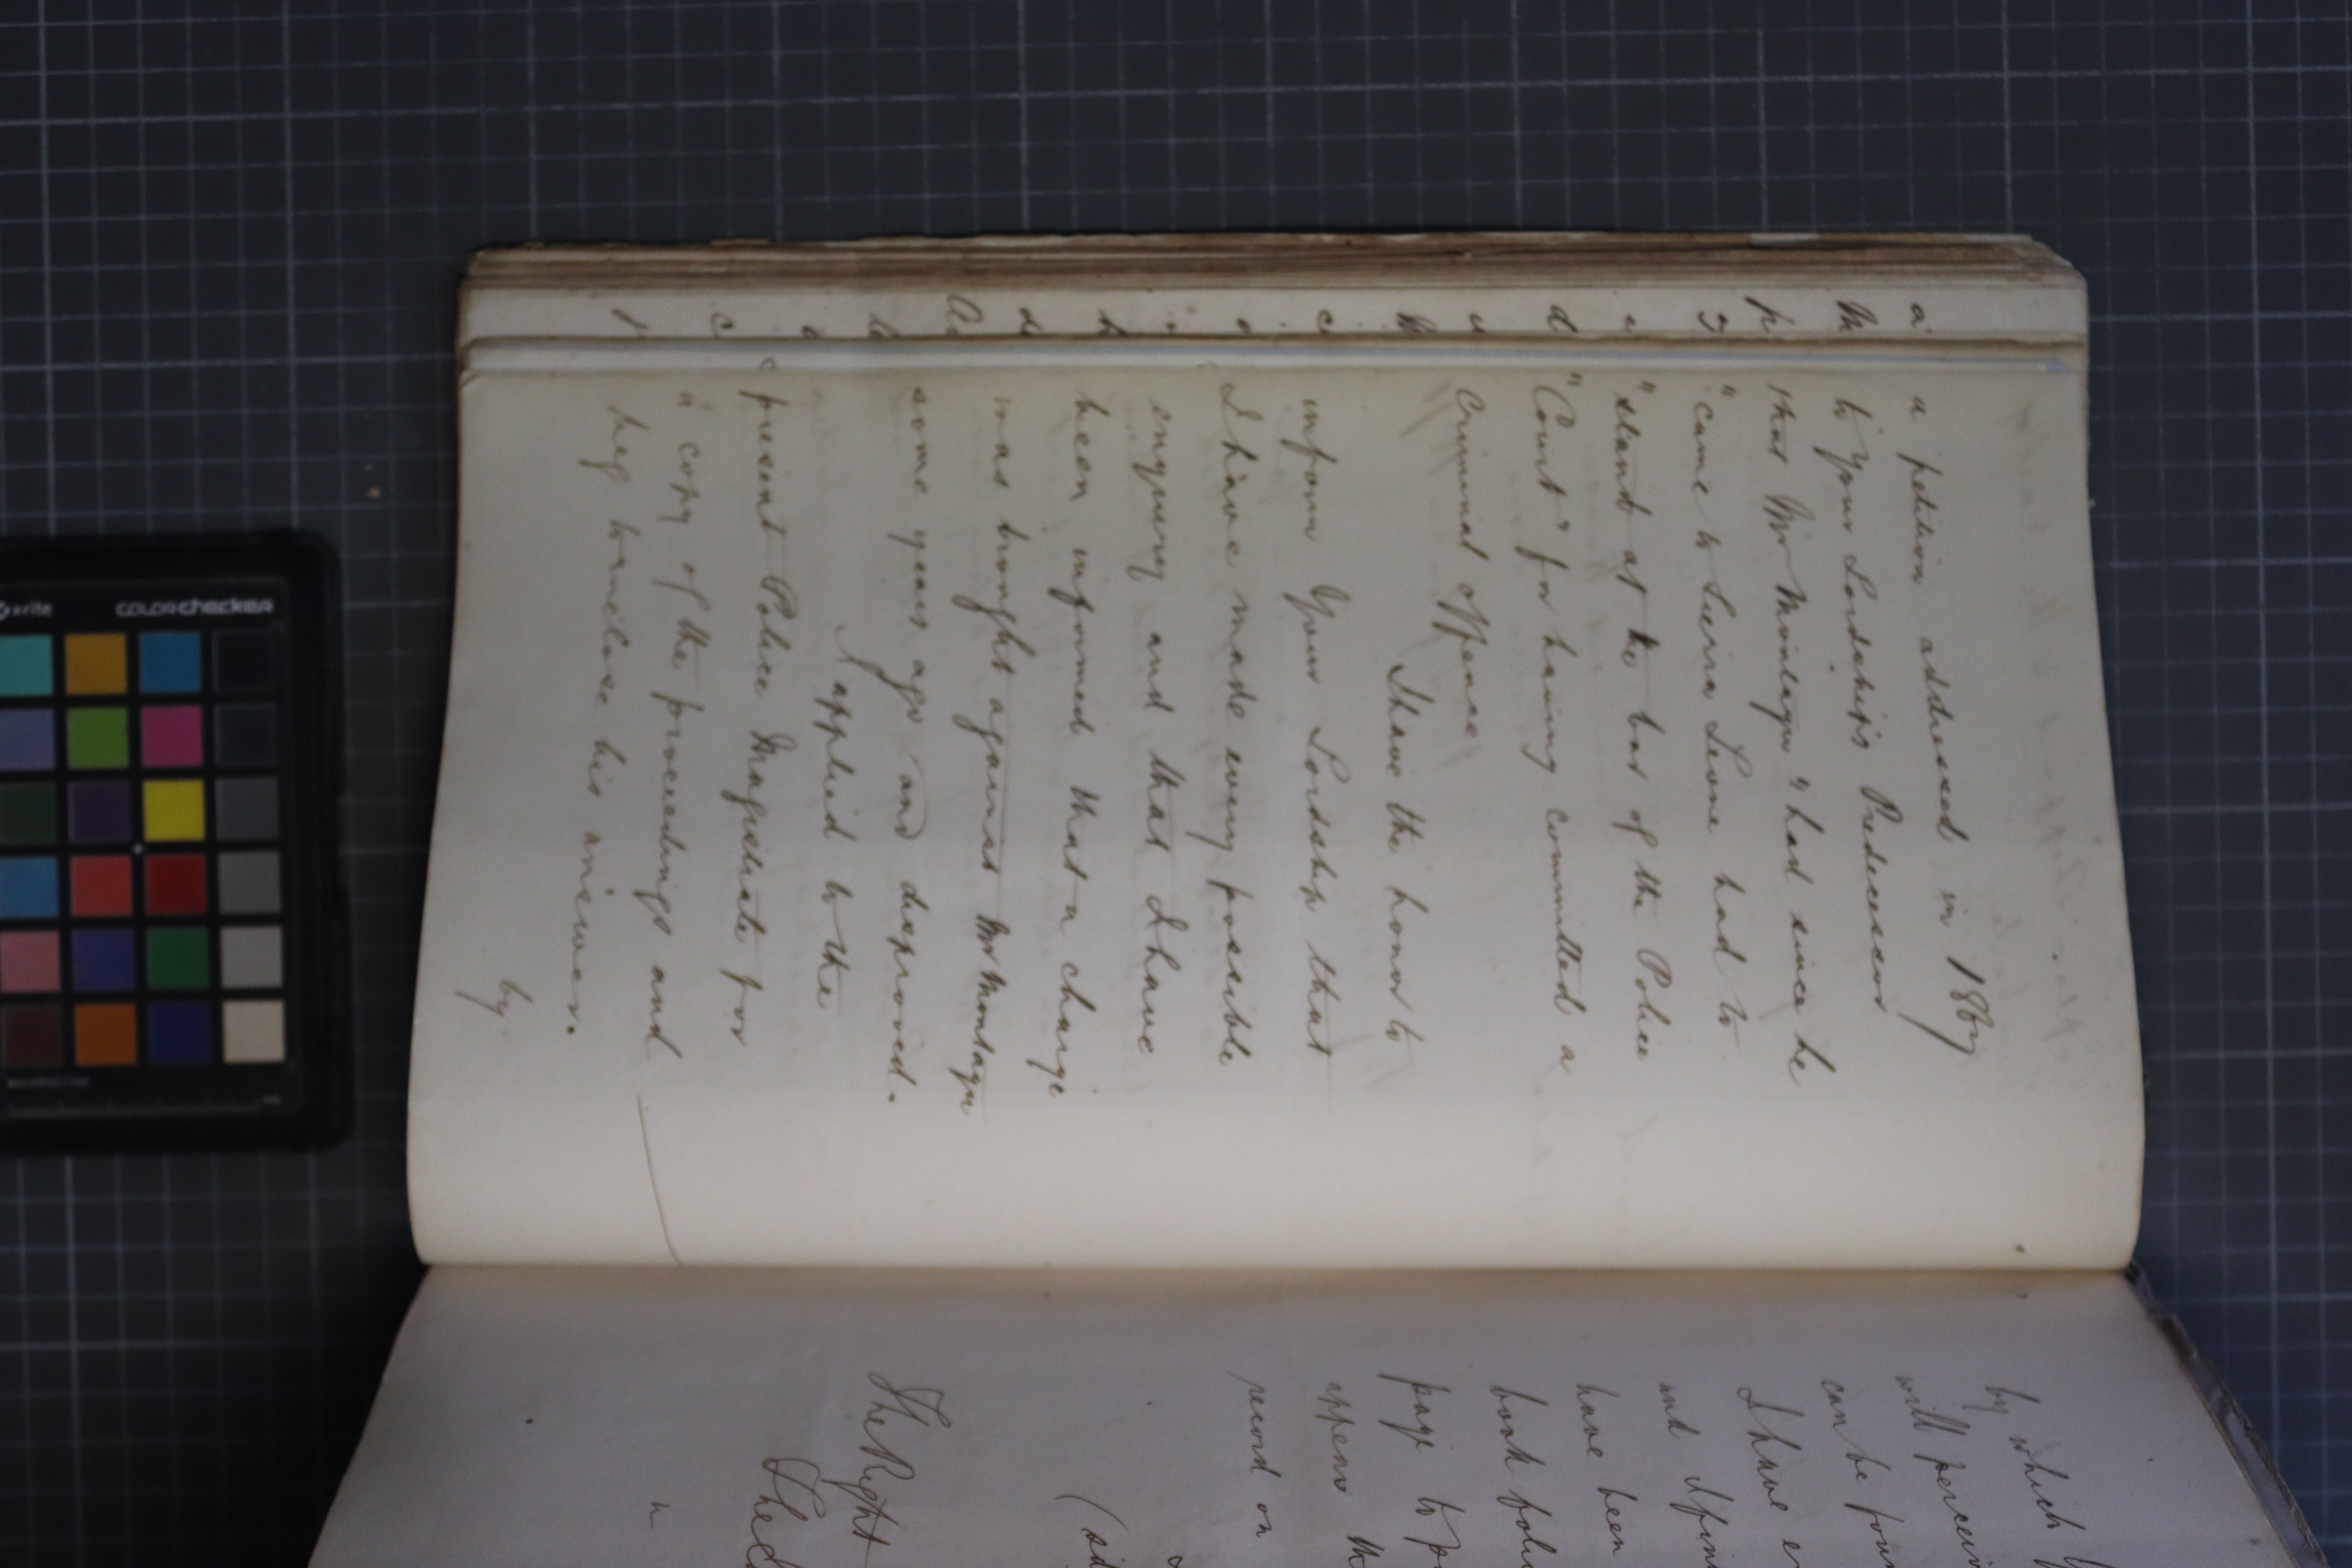 a petition addressed in 1867
to Your Lordship's Predecessor
that Mr Montagu "had since he
"came to Sierra Leone had to
"stand at the bar of the Police
"Court" for having committed a
Criminal offence
I have the honor to
inform Your Lordship that
I have made every possible
enquiry and that I have
been informed that a charge
was brought against Mr Montagu
some years ago and disproved.
I applied to the
present Police Magistrate for
a copy of the proceedings and
beg to enclose his answer.
by
by which
will
can be
I have
and
have been
book
page to
appears
record on
The Right
colorchecker